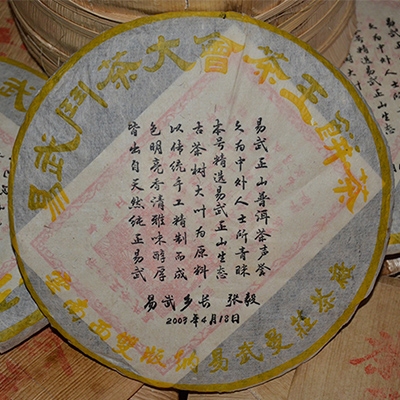 易武鬥茶大會茶王餅茶
易武正山普洱茶声誉
久为中外人士所青睐
本号精选易武正山生态
古茶树大叶为原料
以传统手工精制而成
色明亮香清雅味醇厚
皆出自天然纯正易武
易武乡长 张毅
2003年4月18日
雲南西雙版納易武曼莊茶